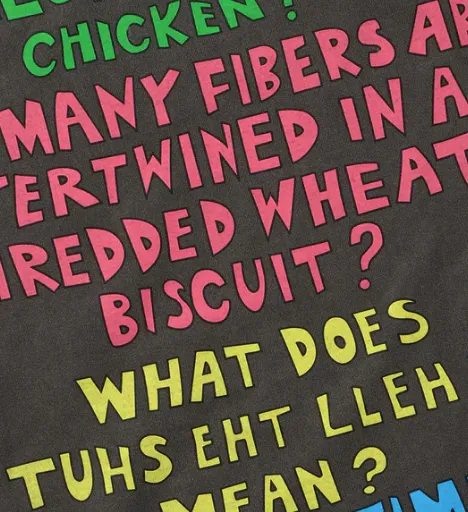 CHICKEN?
MANY FIBERS AR
TERTWINED IN A
HREDDED WHEAT
BISCUIT?
WHAT DOES
TUHS EHT LLEH
MEAN?